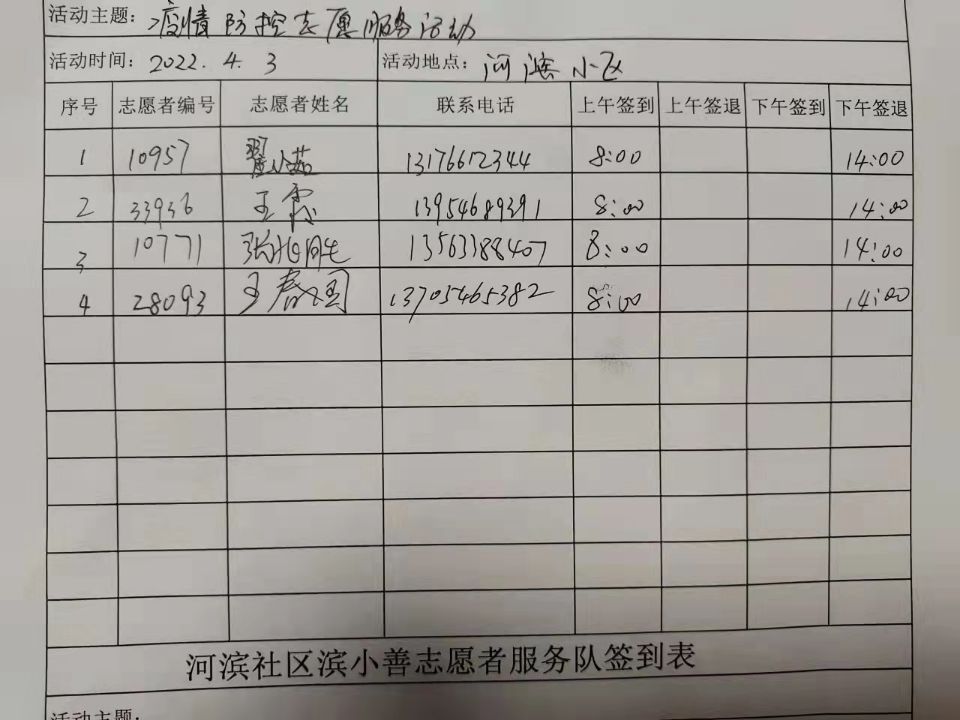 活动主题：疫情防控志愿服务活动
活动时间：2022.4.3 活动地点：河滨小区
序号 志愿者编号 志愿者姓名 联系电话 上午签到 上午签退 下午签到 下午签退
1 10957 翟小茹 13176612344 8:00 14:00
2 33936 王霞 13954689391 8:00 14:00
3 10771 13563388407 8:00 14:00
4 28093 王春国 13705465382 8:00 14:00
河滨社区滨小善志愿者服务队签到表
活动主题：